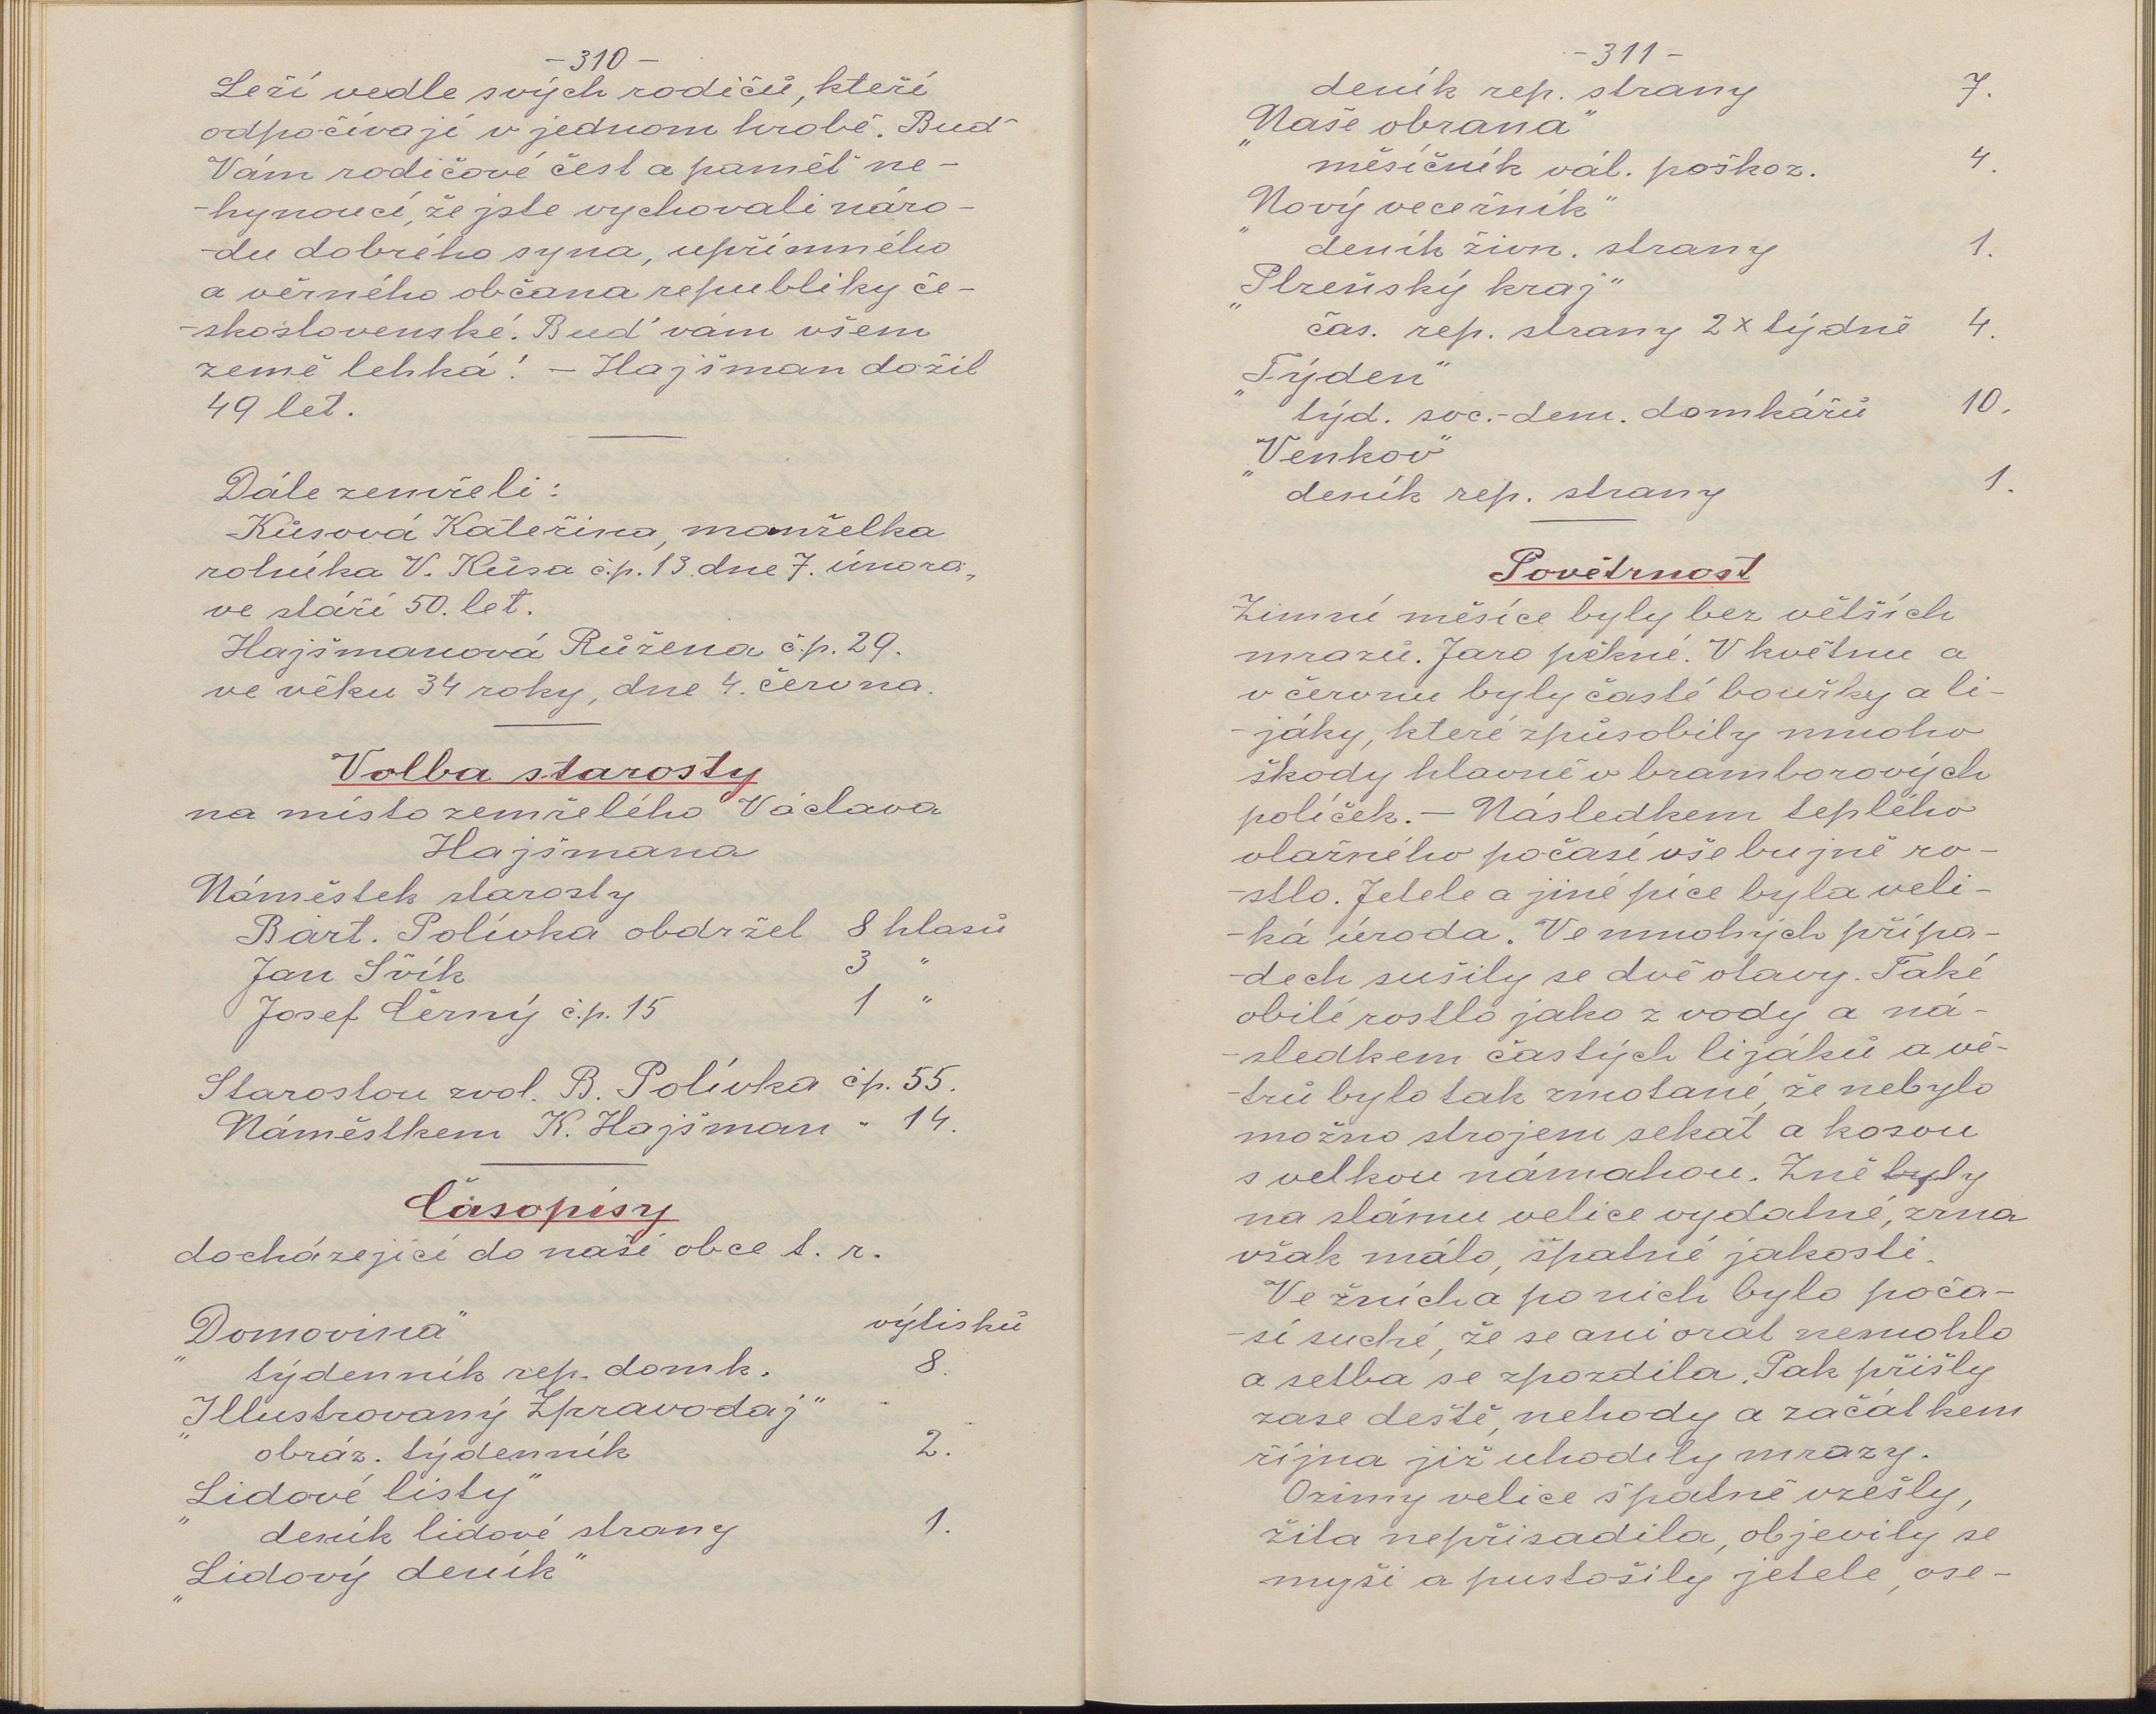 -310-
Leží vedle svých rodičů, kteří
odpočívají v jednom hrobě. Buď
Vám rodičové čest a paměť ne-
-hynoucí, že jste vychovali náro-
-du dobrého syna, upřímného
a věrného občana republiky če-
-skoslovenské. Buď vám všem
země lehká! - Hajšman dožil
49 let.
Dále zemřeli:
Kůsová Kateřina, manželka
rolníka V. Kůsa č.p. 13. dne 7. února,
ve stáří 50. let.
Hajšmanová Růžena č.p. 29.
ve věku 34 roky, dne 4. června.
Volba starosty
na místo zemřelého Václava
Hajšmana
Náměstek starosty
Bart. Polívka obdržel 8 hlasů
Jan Švík 3 "
Josef Černý č.p. 15 1 "
Starostou zvol. B. Polívka čp. 55.
Náměstkem K. Hajšman " 14.
Časopisy
docházející do naší obce t. r.
„Domovina" výtisků
týdenník rep. domk. 8.
„Illustrovaný Zpravodaj"
obráz. týdenník 2.
„Lidové listy"
deník lidové strany 1.
„Lidový deník"
-311-
deník rep. strany 7.
„Naše obrana"
měsíčník vál. poškoz. 4.
„Nový večerník"
deník živn. strany 1.
„Plzeňský kraj"
čas. rep. strany 2x týdně 4.
„Týden"
týd. soc.-dem. domkářů 10.
„Venkov"
deník rep. strany 1.
Povětrnost
Zimní měsíce byly bez větších
mrazů. Jaro pěkné. V květnu a
v červnu byly časté bouřky a li-
-jáky, které způsobily mnoho
škody hlavně v bramborových
políček. - Následkem teplého
vlažného počasí vše bujně ro-
-stlo. Jetele a jiné píce byla veli-
-ká úroda. Ve mnohých přípa-
-dech sušily se dvě otavy. Také
obilí rostlo jako z vody a ná-
-sledkem častých lijáků a vě-
-trů bylo tak zmotané, že nebylo
možno strojem sekat a kosou
s velkou námahou. Žně byly
na slámu velice vydatné, zrna
však málo, špatné jakosti.
Ve žních a po nich bylo poča-
-sí suché, že se ani orat nemohlo
a setba se zpozdila. Pak přišly
zase deště, nehody a začátkem
října již uhodily mrazy.
Ozimy velice špatně vzešly,
žita nepřisadila, objevily se
myši a pustošily jetele, ose-